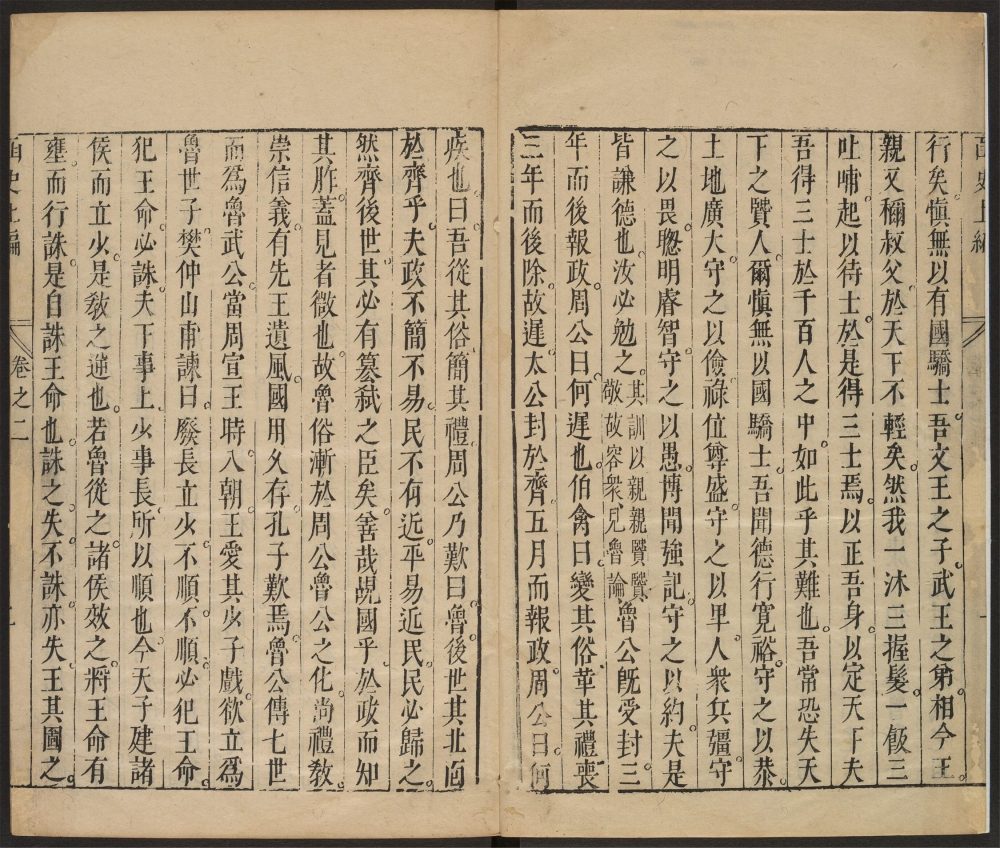 函史上編
行矣慎無以有國驕士吾文王之子武王之弟相今王
親又稱叔父於天下不輕矣然我一沐三握髮一飯三
吐哺起以待士於是得三士焉以正吾身以定天下夫
吾得三士於千百人之中如此乎其難也吾常恐失天
下之賢人爾慎無以國驕士吾聞德行寬裕守之以恭
土地廣大守之以儉祿位尊盛守之以卑人衆兵彊守
之以畏聰明睿智守之以愚博聞強記守之以約夫是
皆謙德也汝必勉之其訓以親親賢賢敬故容衆見魯論魯公旣受封三
年而後報政周公曰何遲也伯禽曰變其俗革其禮喪
三年而後除故遲太公封於齊五月而報政周公曰何
疾也曰吾從其俗簡其禮周公乃歎曰魯後世其北面
於齊乎夫政不簡不易民不有近平易近民民必歸之
然齊後世其必有簒弑之臣矣善哉覘國乎於政而知
其胙蓋見者微也故魯俗漸於周公魯公之化尚禮教
崇信義有先王遺風國用久存孔子歎焉魯公傳七世
而爲魯武公當周宣王時入朝王愛其少子戲欲立爲
魯世子樊仲山甫諫曰廢長立少不順不順必犯王命
犯王命必誅夫下事上少事長所以順也今天子建諸
侯而立少是敎之逆也若魯從之諸侯效之將王命有
壅而行誅是自誅王命也誅之失不誅亦失王其圖之
函史上編
卷之二